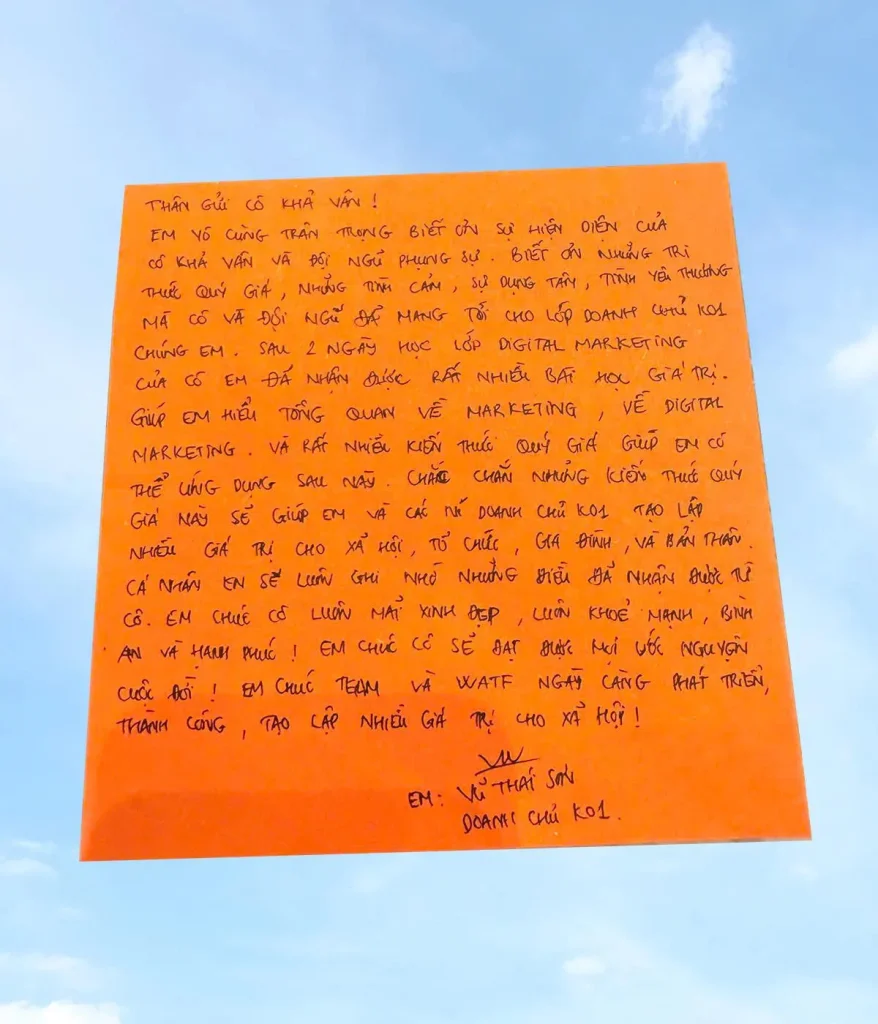 THÂN GỬI CÔ KHẢ VÂN !
EM VÔ CÙNG TRÂN TRỌNG BIẾT ƠN SỰ HIỆN DIỆN CỦA
CÔ KHẢ VÂN VÀ ĐỘI NGŨ PHỤNG SỰ. BIẾT ƠN NHỮNG TRI
THỨC QUÝ GIÁ, NHỮNG TÌNH CẢM, SỰ DỤNG TÂM, TÌNH YÊU THƯƠNG
MÀ CÔ VÀ ĐỘI NGŨ ĐÃ MANG TỚI CHO LỚP DOANH CHỦ K01
CHÚNG EM. SAU 2 NGÀY HỌC LỚP DIGITAL MARKETING
CỦA CÔ EM ĐÃ NHẬN ĐƯỢC RẤT NHIỀU BÀI HỌC GIÁ TRỊ.
GIÚP EM HIỂU TỔNG QUAN VỀ MARKETING, VỀ DIGITAL
MARKETING. VÀ RẤT NHIỀU KIẾN THỨC QUÝ GIÁ GIÚP EM CÓ
THỂ ỨNG DỤNG SAU NÀY. CHẮC CHẮN NHỮNG KIẾN THỨC QUÝ
GIÁ NÀY SẼ GIÚP EM VÀ CÁC DOANH CHỦ K01 TẠO LẬP
NHIỀU GIÁ TRỊ CHO XÃ HỘI, TỔ CHỨC, GIA ĐÌNH, VÀ BẢN THÂN.
CÁ NHÂN EM SẼ LUÔN GHI NHỚ NHỮNG ĐIỀU ĐÃ NHẬN ĐƯỢC TỪ
CÔ. EM CHÚC CÔ LUÔN MÃI XINH ĐẸP, LUÔN KHOẺ MẠNH, BÌNH
AN VÀ HẠNH PHÚC ! EM CHÚC CÔ SẼ ĐẠT ĐƯỢC MỌI ƯỚC NGUYỆN
CUỘC ĐỜI ! EM CHÚC TEAM VÀ WATF NGÀY CÀNG PHÁT TRIỂN,
THÀNH CÔNG, TẠO LẬP NHIỀU GIÁ TRỊ CHO XÃ HỘI !
EM: VŨ THÁI SƠN
DOANH CHỦ K01.